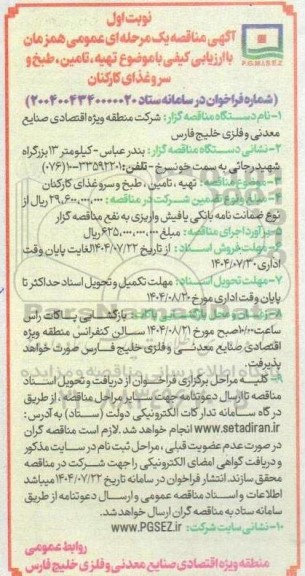 نوبت اول
آگهی مناقصه یک مرحله ای عمومی همزمان
با ارزیابی کیفی با موضوع تهیه، تامین، طبخ و
سرو غذای کارکنان
P.G.M.S.E.Z
(شماره فراخوان در سامانه ستاد ۲۰۰۴۰۰۴۳۴۰۰۰۰۰۲۰)
۱- نام دستگاه مناقصه گزار: شرکت منطقه ویژه اقتصادی صنایع
معدنی و فلزی خلیج فارس
۲- نشانی دستگاه مناقصه گزار: بندر عباس - کیلومتر ۱۳ بزرگراه
شهید رجائی به سمت خونسرخ - تلفن: ۱۰-۳۳۵۹۲۲۰۱(۰۷۶)
۳- موضوع مناقصه: تهیه، تامین، طبخ و سرو غذای کارکنان
تضمین شرکت در مناقصه: ۲۹،۶۰۰،۰۰۰،۰۰۰ ریال از
نوع ضمانت نامه بانکی یا فیش واریزی به نفع مناقصه گزار
برآورد اجرای مناقصه: مبلغ ۶۲۵،۰۰۰،۰۰۰،۰۰۰ ریال
۶- مهلت فروش اسناد: از تاریخ ۱۴۰۴/۰۷/۲۲ لغایت پایان وقت
اداری ۱۴۰۴/۰۷/۳۰
۷- مهلت تحویل اسناد: مهلت تکمیل و تحویل اسناد حداکثر تا
پایان وقت اداری مورخ ۱۴۰۴/۰۸/۲۰
بازگشایی پاکات راس
ساعت ۱۰:۰۰ صبح مورخ ۱۴۰۴/۰۸/۲۱ سالن کنفرانس منطقه ویژه
اقتصادی صنایع معدنی و فلزی خلیج فارس صورت خواهد
پذیرفت.
۹- کلیه مراحل برگزاری فراخوان از دریافت و تحویل اسناد
مناقصه تا ارسال دعوتنامه جهت سایر مراحل مناقصه، از طریق
درگاه سامانه تدارکات الکترونیکی دولت (ستاد) به آدرس:
www.setadiran.ir انجام خواهد شد. لازم است مناقصه گران
در صورت عدم عضویت قبلی، مراحل ثبت نام در سایت مذکور
و دریافت گواهی امضای الکترونیکی را جهت شرکت در مناقصه
محقق سازند. انتشار فراخوان در سامانه تاریخ ۱۴۰۴/۰۷/۲۲ میباشد
اطلاعات و اسناد مناقصه عمومی و ارسال دعوتنامه از طریق
سامانه ستاد به مناقصه گران ارسال خواهد شد.
۱۰- نشانی سایت شرکت: www.PGSEZ.ir
روابط عمومی
منطقه ویژه اقتصادی صنایع معدنی و فلزی خلیج فارس